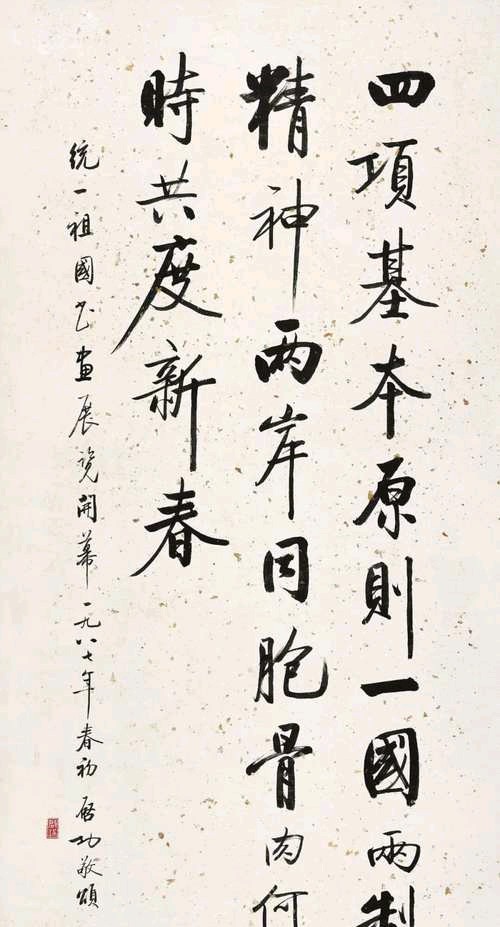 四項基本原則一國兩制
精神兩岸同胞骨肉何
時共度新春
統一祖國书画展览開幕 一九八七年春初 啓功敬頌